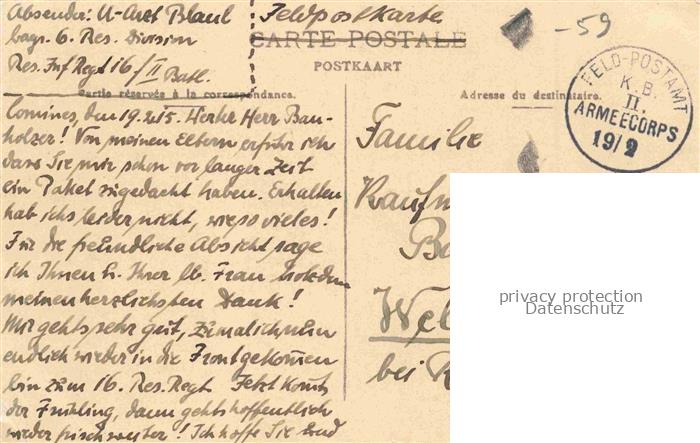 Absender: U-Arzt Blaul
bayr. 6. Res. Division
Res. Inf Regt 16/II Batl.
Feldpostkarte
CARTE POSTALE
POSTKAART
Partie réservée à la correspondance.
Adresse du destinataire.
-59
FELD-POSTAMT
K.B.
II.
ARMEECORPS
19/2
Comines, den 19.2.15. Herr Bau-
holzer! Von meinen Eltern erfuhr ich
dass Sie mir schon vor langer Zeit
ein Paket zugedacht haben. Erhalten
hab ichs leider nicht, wie so vieles!
Für die freundliche Absicht sage
ich Ihnen u. Ihrer lb. Frau trotzdem
meinen herzlichsten Dank!
Mir gehts sehr gut, zumal ich nun
endlich wieder in die Front gekommen
bin zum 16. Res. Regt. Jetzt kommt
der Frühling, dann gehts hoffentlich
wieder frisch weiter! Ich hoffe Sie und
Familie
Kaufm
Ba
Wel
bei R
privacy protection
Datenschutz